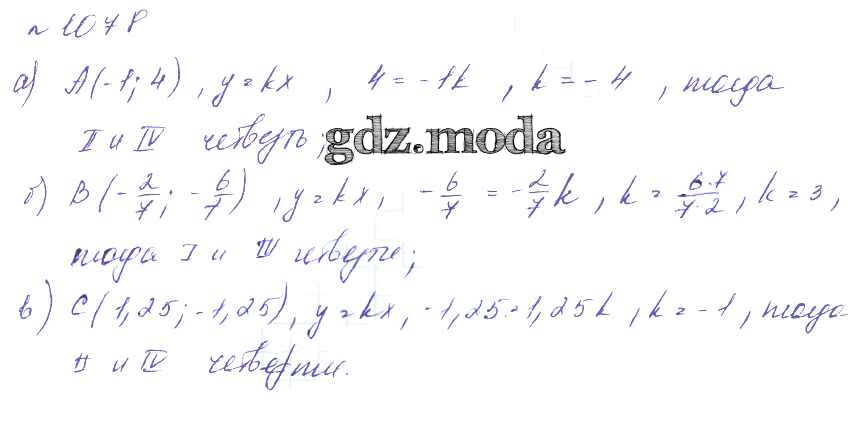 № 1078
а) A(-1; 4), y = kx, 4 = -1k, k = -4, тогда
II и IV четверть;
gdz.moda
б) B(-2/7; -6/7), y = kx, -6/7 = -2/7 k, k = 6·7/7·2, k = 3,
тогда I и III четверти;
в) C(1,25; -1,25), y = kx, -1,25 = 1,25k, k = -1, тогда
II и IV четверти.